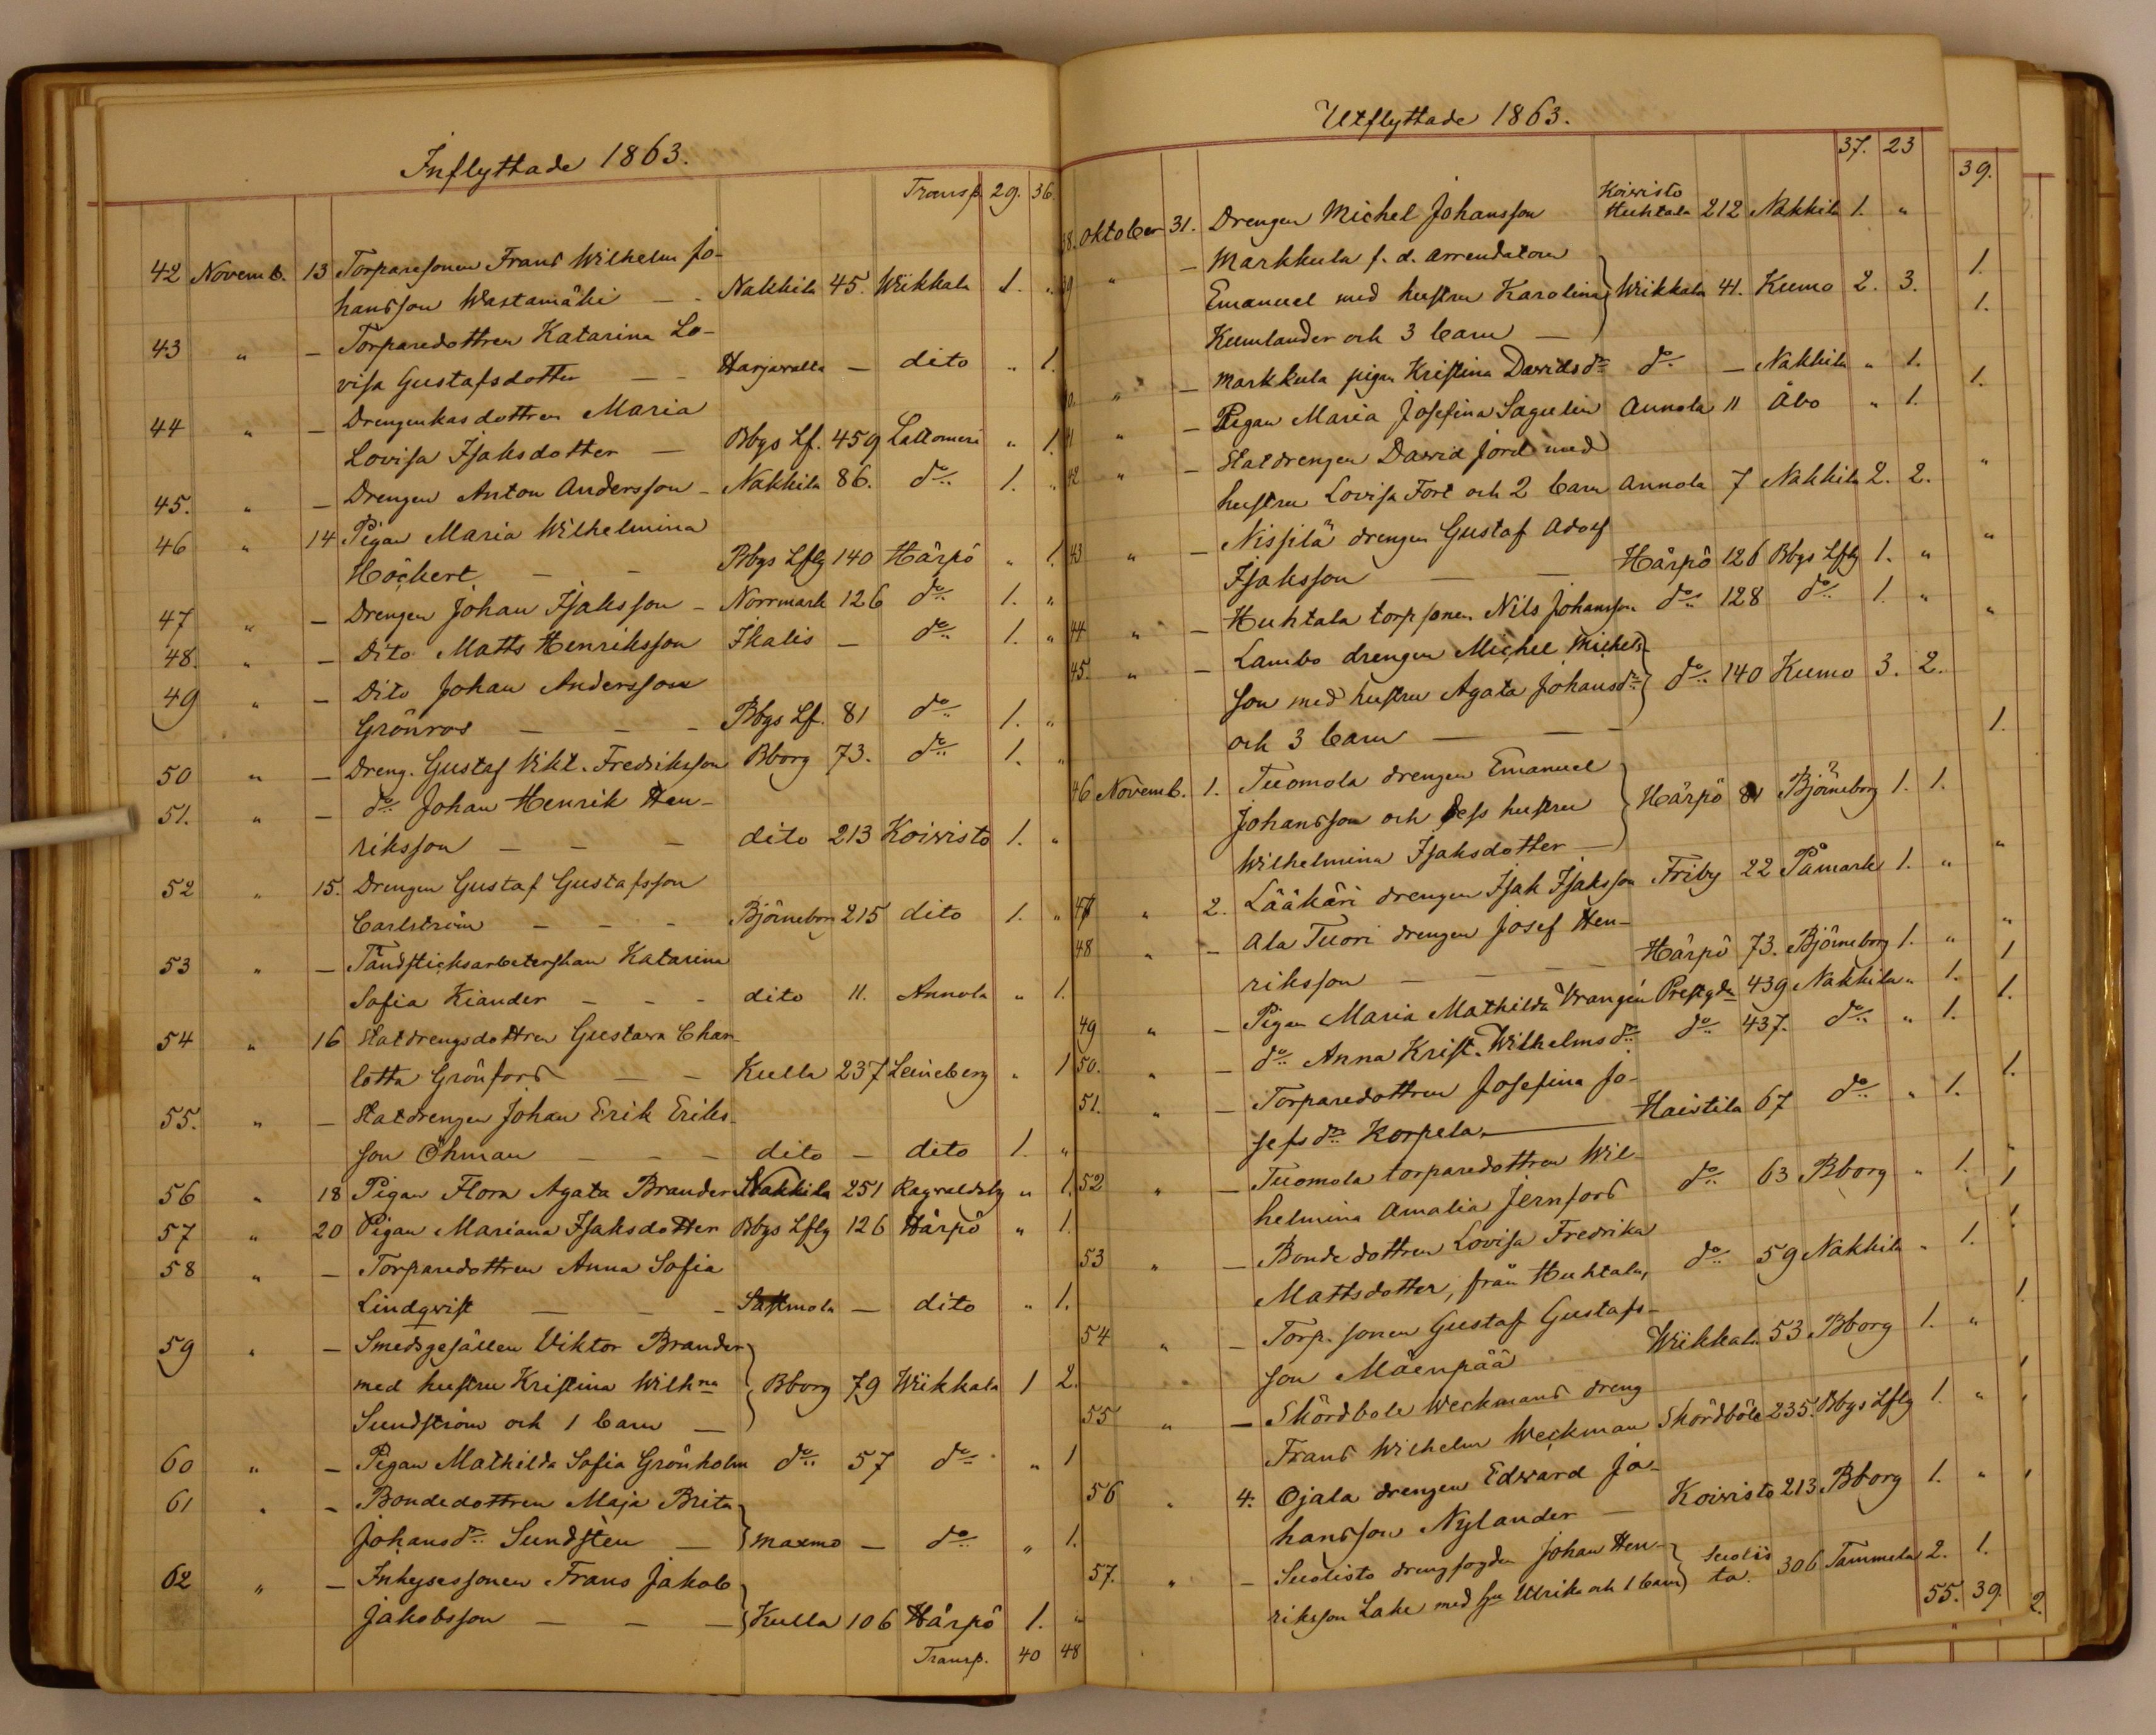 Inflyttade 1863.
Transp. 29. 36.
42 Novemb. 13 Torparesonen Frans Wilhelm Jo-
hansson Wastamäki — Nakkila 45. Wiikkala 1. "
43 " — Torparedottren Katarina Lo-
visa Gustafsdotter — Harjavalla — dito " 1.
44 " — Drengenkasdottren Maria
Lovisa Isaksdotter — Bbgs Lf. 459 Lattomeri " 1.
45. " — Drengen Anton Andersson — Nakkila 86. do 1. "
46 " 14 Pigan Maria Wilhelmina
Höckert — — Bbgs Lflg 140 Härpö " 1.
47 " — Drengen Johan Isaksson — Norrmark 126 do 1. "
48. " — Dito Matts Henriksson Ikalis — do 1. "
49 " — Dito Johan Andersson
Grönros — — Bbgs Lf. 81 do 1. "
50 " — Dreng. Gustaf Vikt. Fredriksson Bborg 73. do 1. "
51. " — do Johan Henrik Hen-
riksson — — — dito 213 Koivisto 1. "
52 " 15. Drengen Gustaf Gustafsson
Carlström — — — Björneborg 215 dito 1. "
53 " — Tändsticksarbeterskan Katarina
Sofia Kiander — — — dito 11. Annola " 1.
54 " 16 Statdrengsdottren Gustava Char-
lotta Grönfors — — Kulla 237 Leineberg " 1
55. " — Statdrengen Johan Erik Eriks-
son Öhman — — — dito — dito 1. "
56 " 18 Pigan Flora Agata Brander Nakkila 251 Ragvaldsby " 1.
57 " 20 Pigan Mariana Isaksdotter Bbgs Lflg 126 Härpö " 1.
58 " — Torparedottren Anna Sofia
Lindqvist — — — Sastmola — dito " 1.
59 " — Smedsgesällen Viktor Brander
med hustru Kristina Wilhna Bborg 79 Wiikkala 1 2.
Sundström och 1 barn —
60 " — Pigan Mathilda Sofia Grönholm do 57 do " 1
61 " — Bondedottren Maja Brita
Johansdr Sundstèn — Maxmo — do " 1.
62 " — Inhysessonen Frans Jakob
Jakobsson — — — Kulla 106 Härpö 1. "
Transp. 40 48
Utflyttade 1863.
37. 23
38. Oktober 31. Drengen Michel Johansson Koivisto Huhtala 212 Nakkila 1. "
39 " — Markkula f. d. arrendatorn
Emanuel med hustru Karolina Wiikkala 41. Kumo 2. 3.
Kumlander och 3 barn —
40. " — Markkula pigan Kristina Davidsdr do — Nakkila " 1.
41 " — Pigan Maria Josefina Sagulin Annola 11 Åbo " 1.
42 " — Statdrengen David Jord med
hustru Lovisa Fort och 2 barn Annola 7 Nakkila 2. 2.
43 " — Nissilä drengen Gustaf Adolf
Isaksson — — Härpö 126 Bbgs Lflg 1. "
44 " — Huhtala torpsonen Nils Johansson do 128 do 1. "
45. " — Lambo drengen Michel Michels-
son med hustru Agata Johansdr do 140 Kumo 3. 2.
och 3 barn — — —
46 Novemb. 1. Tuomola drengen Emanuel
Johansson och dess hustru Härpö 81 Björneborg 1. 1.
Wilhelmina Isaksdotter —
47 " 2. Lääkäri drengen Isak Isaksson Friby 22 Påmark 1. "
48 " — Ala Tuori drengen Josef Hen-
riksson — — — Härpö 73. Björneborg 1. "
49 " — Pigan Maria Mathilda Vrangén Prestgdn 439 Nakkila " 1.
50. " — do Anna Krist. Wilhelmsdr do 437. do " 1.
51. " — Torparedottren Josefina Jo-
sefsdr Korpela — Haistila 67 do " 1.
52 " — Tuomola torparedottren Wil-
helmina Amalia Jernfors do 63 Bborg " 1.
53 " — Bondedottren Lovisa Fredrika
Mattsdotter, från Huhtala, do 59 Nakkila " 1.
54 " — Torp. sonen Gustaf Gustafs-
son Mäenpää Wiikkala 53 Bborg 1. "
55 " — Skördbole Weckmans dreng
Frans Wilhelm Weckman Skördböle 235. Bbgs Lflg 1. "
56 " 4. Ojala drengen Edvard Jo-
hansson Nylander — Koivisto 213 Bborg 1. "
57. " — Suolisto drengfogden Johan Hen-
riksson Lake med hu Ulrika och 1 barn Suolis ta. 306 Tammela 2. 1.
55. 39.
39.